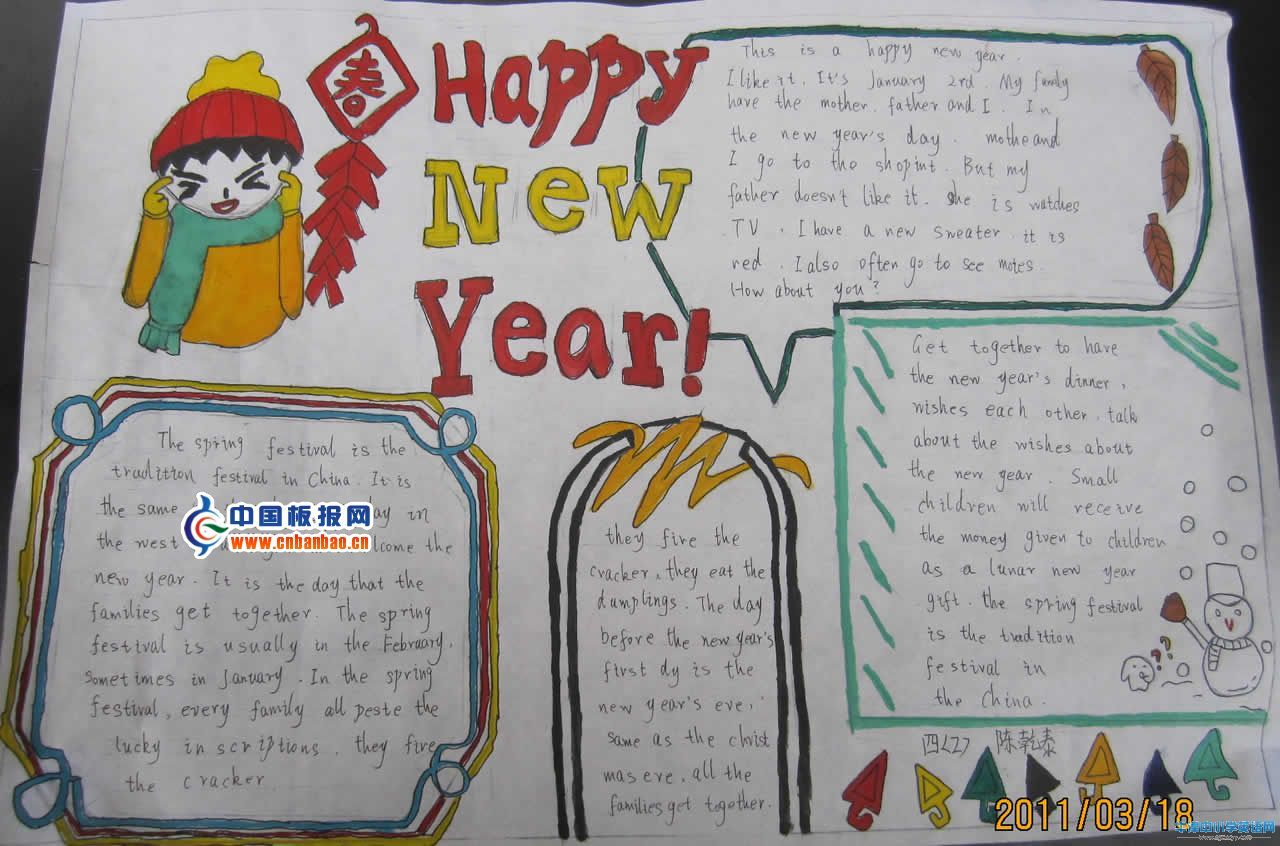 春
Happy
New
Year!
This is a happy new year.
I like it. It's January 2rd. My family
have the mother. father and I. In
the new year's day. mothe and
I go to the shopint. But my
father doesn't like it. She is watches
TV. I have a new sweater. it is
red. I also often go to see moies.
How about you?
The spring festival is the
tradition festival in China. It is
the same day in
the west welcome the
new year. It is the day that the
families get together. The spring
festival is usually in the February,
sometimes in January. In the spring
festival, every family all peste the
lucky in scriptions, they fire
the cracker
中国板报网
www.cnbanbao.cn
they fire the
cracker, they eat the
dumplings. The day
before the new year's
first dy is the
new year's eve,
same as the christ
mas eve, all the
families get together.
Get together to have
the new year's dinner,
wishes each other, talk
about the wishes about
the new year. Small
children will receive
the money given to children
as a lunar new year
gift. the spring festival
is the tradition
festival in
the China.
??
四(2) 陈乾泰
2011/03/18
中小学英语网